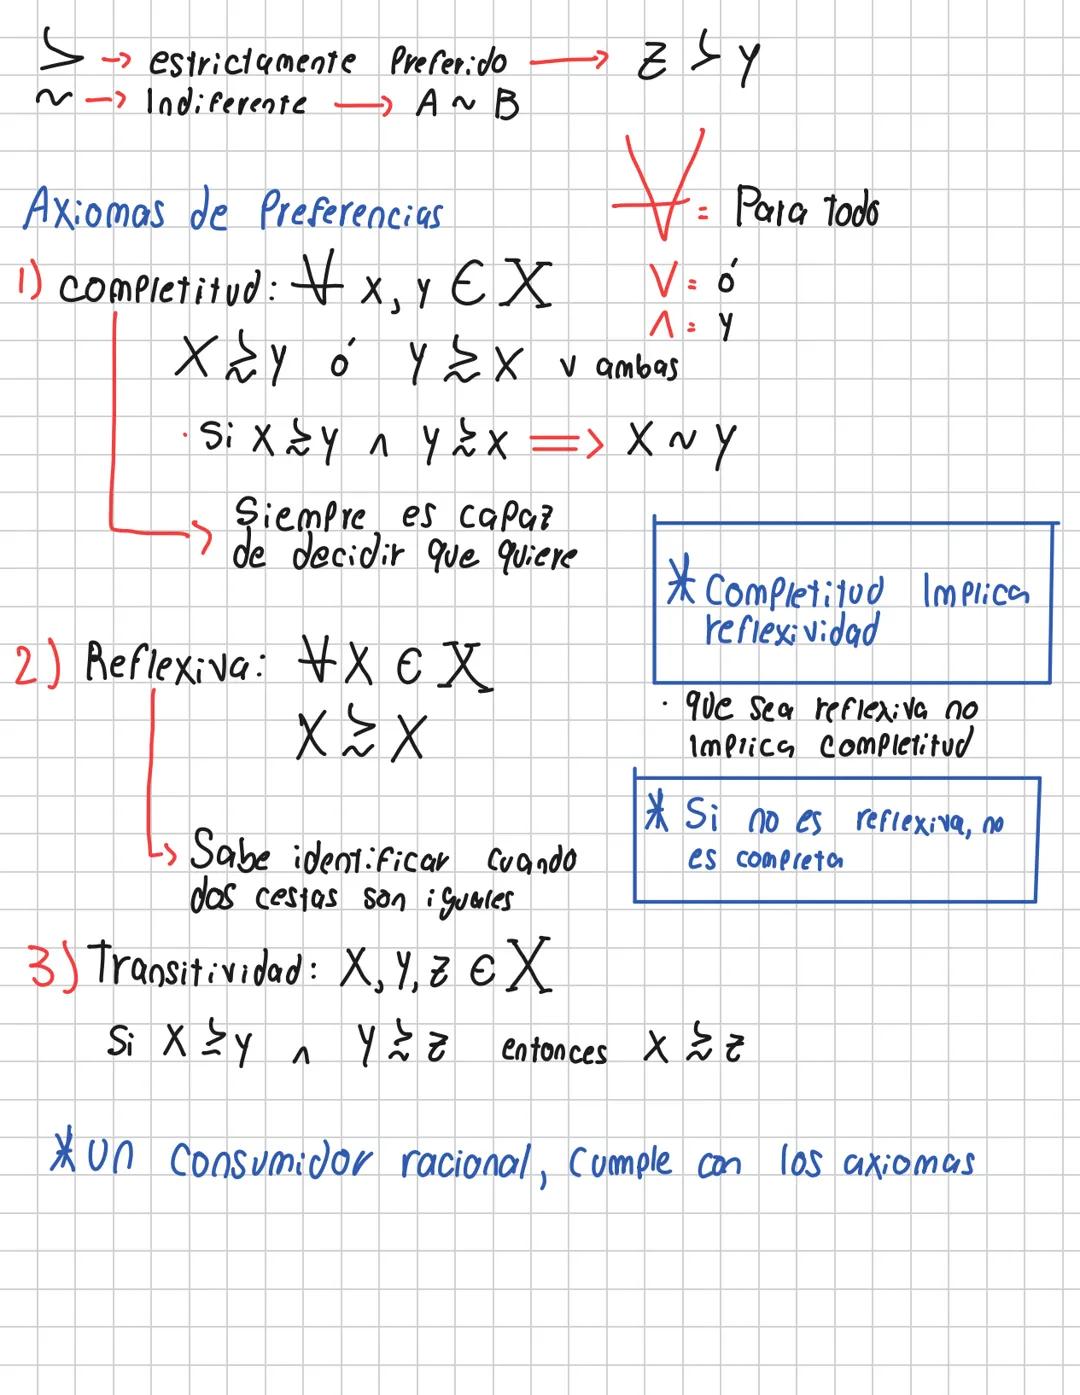 ≻ → estrictamente Preferido → z ≻ y
~ → Indiferente → A ~ B
Axiomas de Preferencias
∀ = Para todo
1) completitud: ∀ x, y ∈ X
V = ó
Λ = y
X ≿ y ó y ≿ X v ambas
· Si X ≿ y ∧ y ≿ x ⟹ X ~ y
Siempre es capaz
de decidir que quiere
* Completitud Implica
reflexividad
2) Reflexiva: ∀ X ∈ X
X ≿ X
· que sea reflexiva no
implica completitud
* Si no es reflexiva, no
es completa
Sabe identificar cuando
dos cestas son iguales
3) Transitividad: X, Y, z ∈ X
Si X ≿ y ∧ y ≿ z entonces X ≿ z
* un consumidor racional, cumple con los axiomas